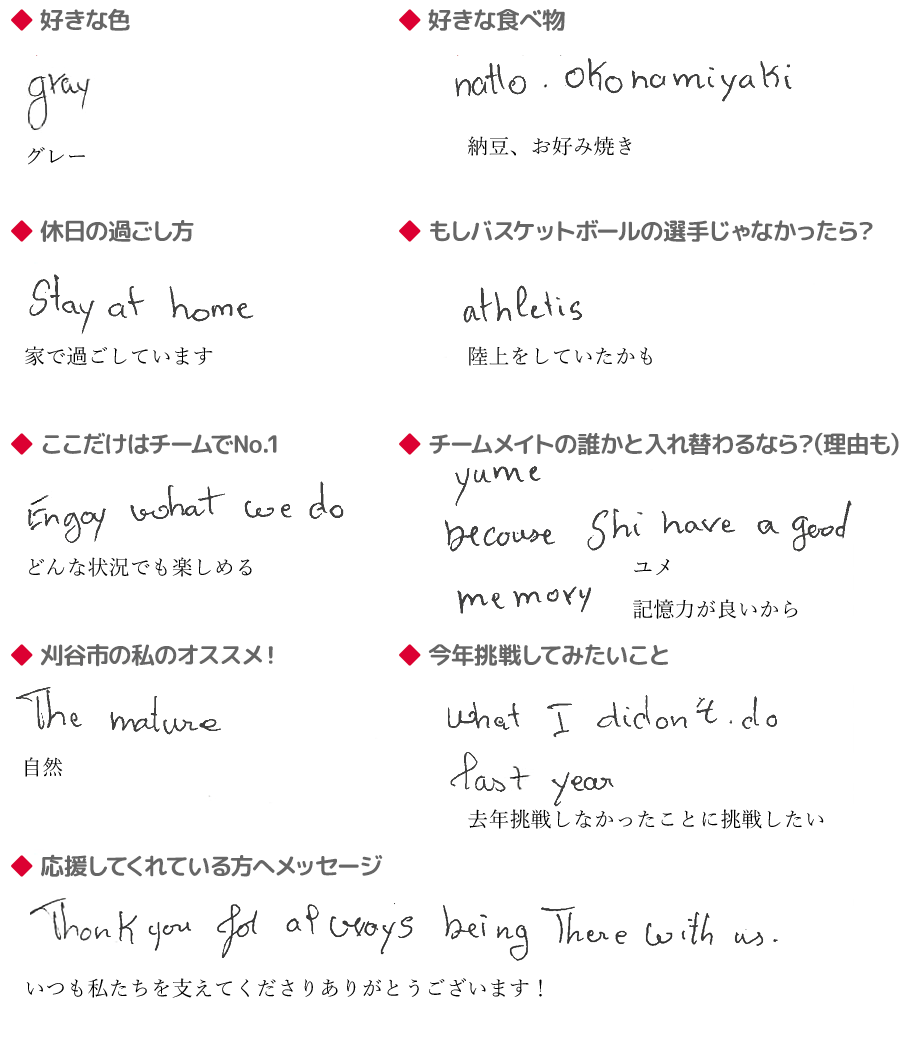 ◆ 好きな色
gray
グレー
◆ 好きな食べ物
natto . okonamiyaki
納豆、お好み焼き
◆ 休日の過ごし方
Stay at home
家で過ごしています
◆ もしバスケットボールの選手じゃなかったら?
athletis
陸上をしていたかも
◆ ここだけはチームでNo.1
Engoy what we do
どんな状況でも楽しめる
◆ チームメイトの誰かと入れ替わるなら?(理由も)
yume
becouse Shi have a good
memory
ユメ
記憶力が良いから
◆ 刈谷市の私のオススメ!
The mature
自然
◆ 今年挑戦してみたいこと
what I didon't. do
last year
去年挑戦しなかったことに挑戦したい
◆ 応援してくれている方へメッセージ
Thank you for always being There with us.
いつも私たちを支えてくださりありがとうございます!